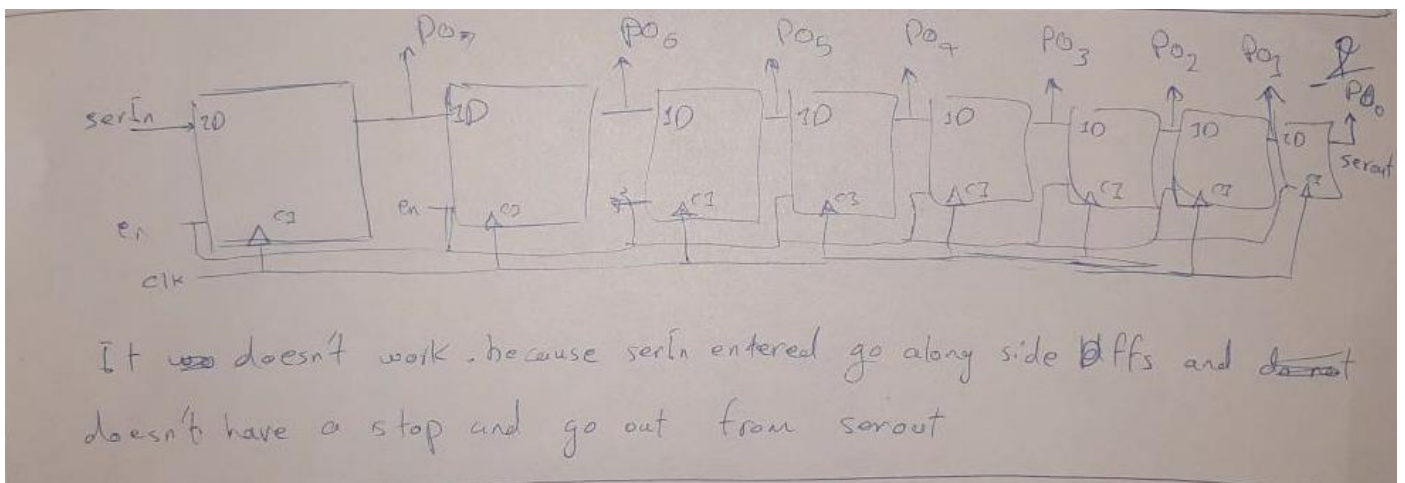 PO7 PO6 PO5 PO4 PO3 PO2 PO1 PO0
serIn 1D 1D 1D 1D 1D 1D 1D 1D serout
en en
C1 C1 C1 C1 C1 C1 C1
clk
It doesn't work. because serIn entered go along side Dffs and
doesn't have a stop and go out from serout